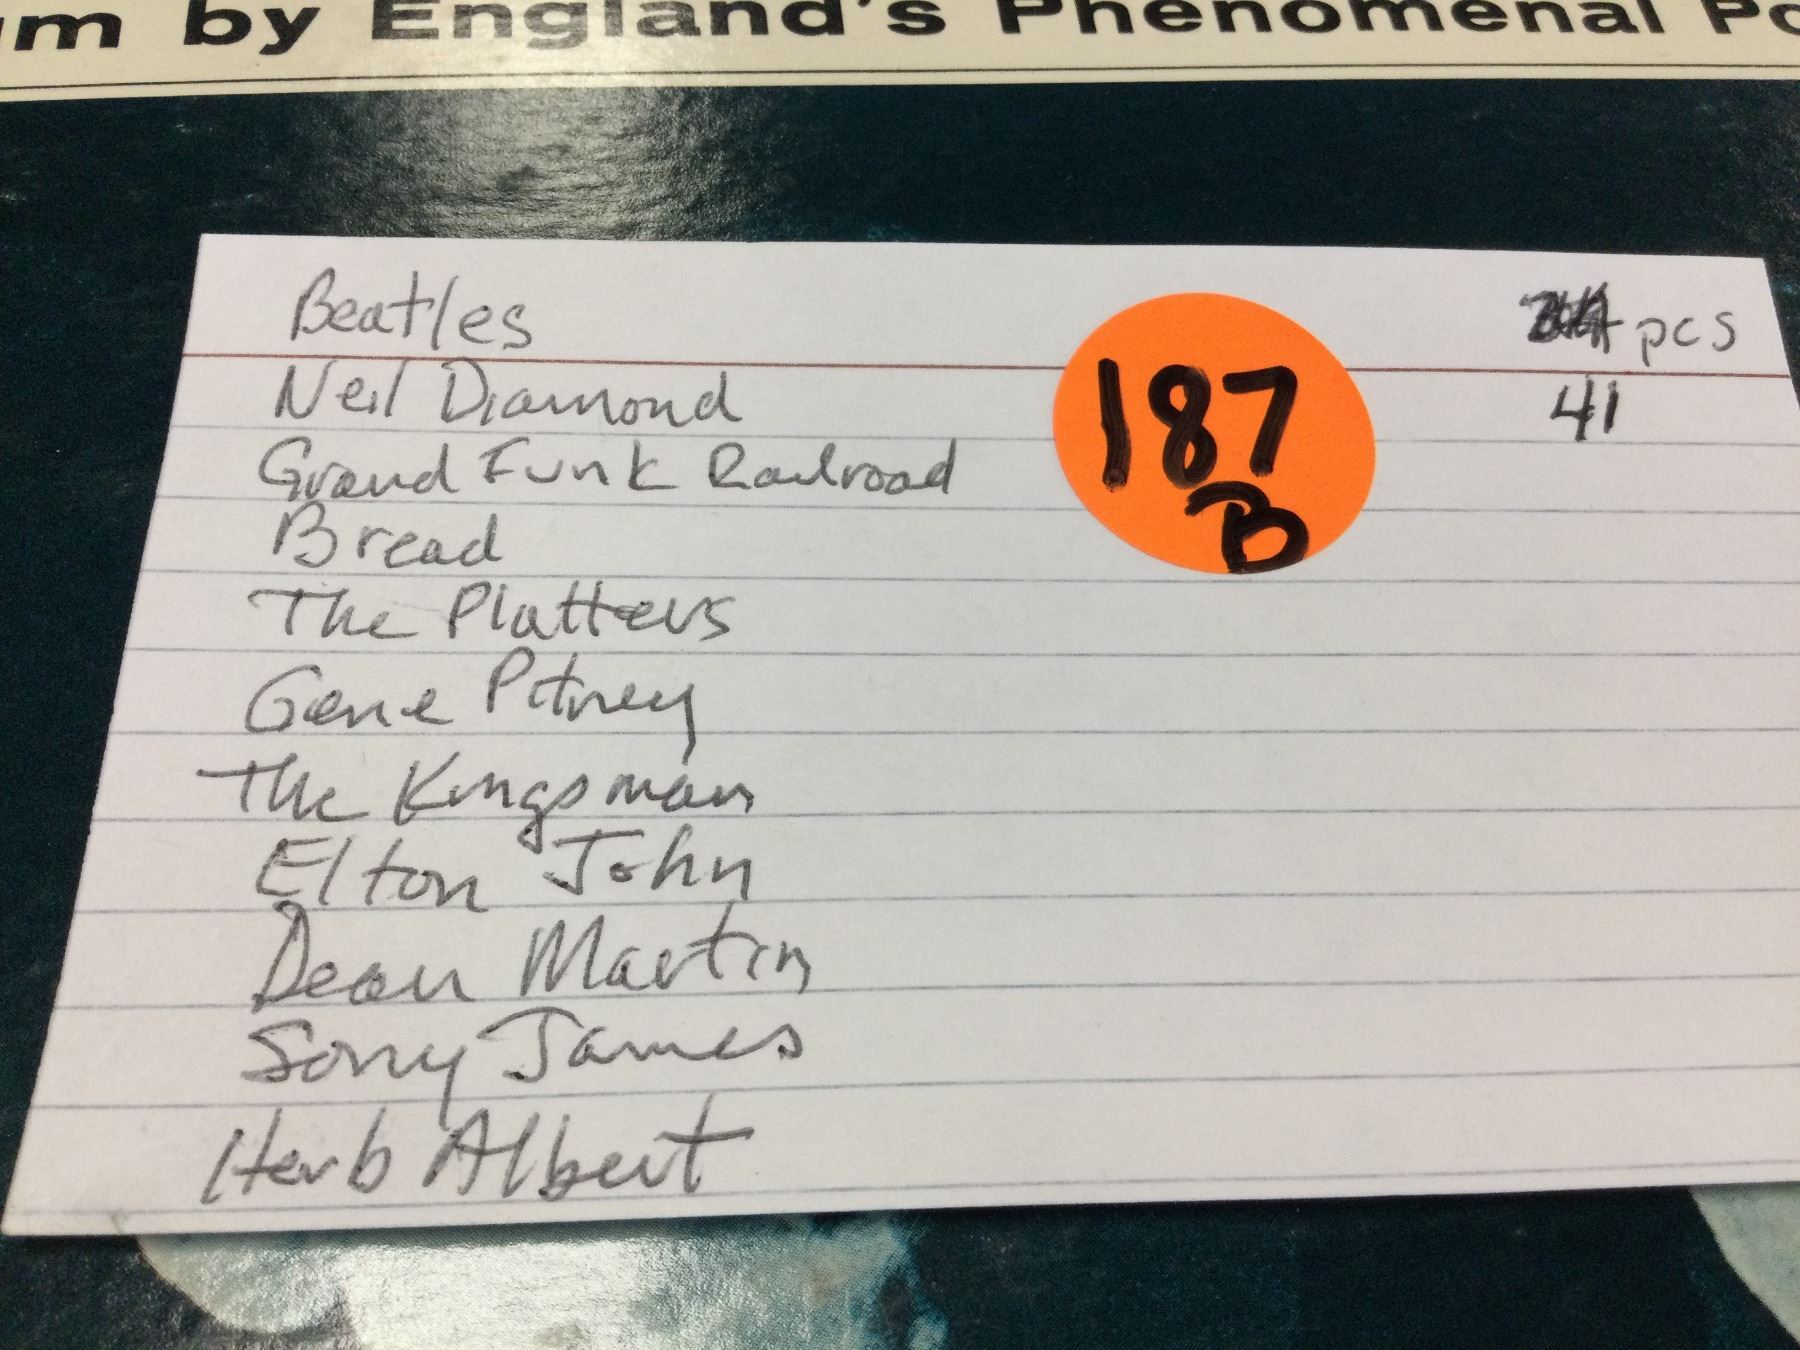 um by England's Phenomenal Po
Beatles
pcs
Neil Diamond
41
Grand Funk Railroad
187
B
Bread
The Platters
Gene Pitney
The Kingsman
Elton John
Dean Martin
Sony James
Herb Albert